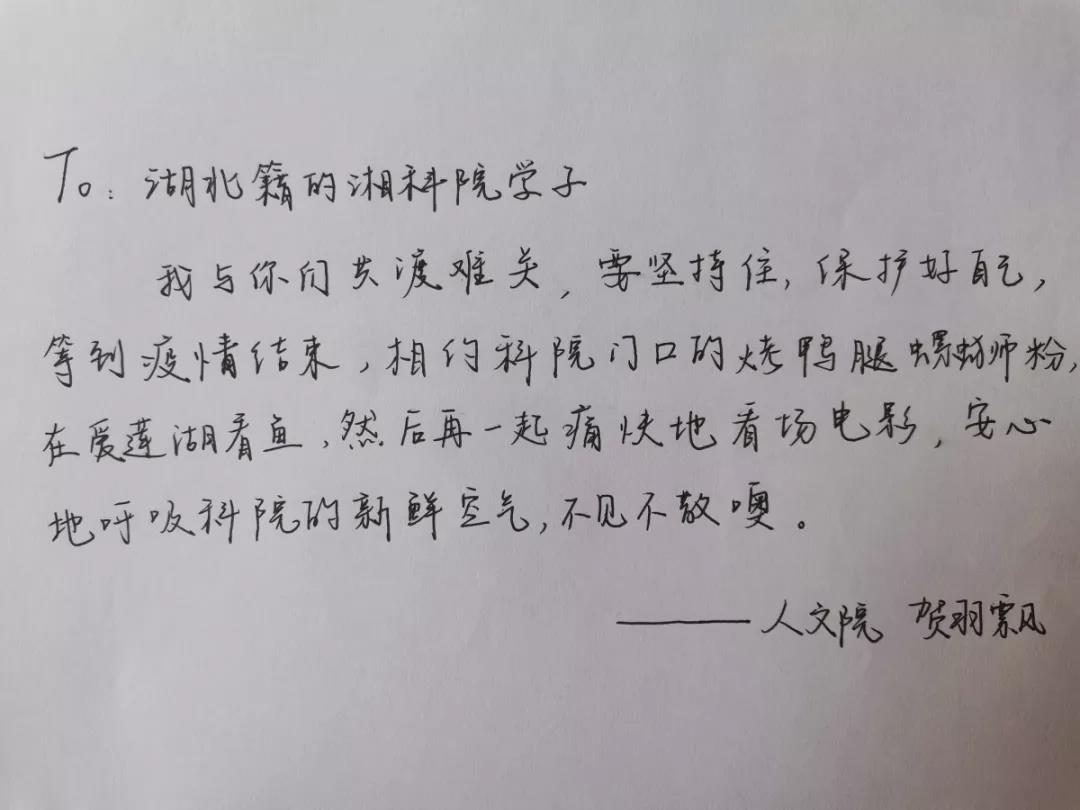 To：湖北籍的湘科院学子
我与你们共渡难关，要坚持住，保护好自己，
等到疫情结束，相约科院门口的烤鸭腿螺蛳师粉，
在爱莲湖看鱼，然后再一起痛快地看场电影，安心
地呼吸科院的新鲜空气，不见不散噢。
——人文院 贺羽飘